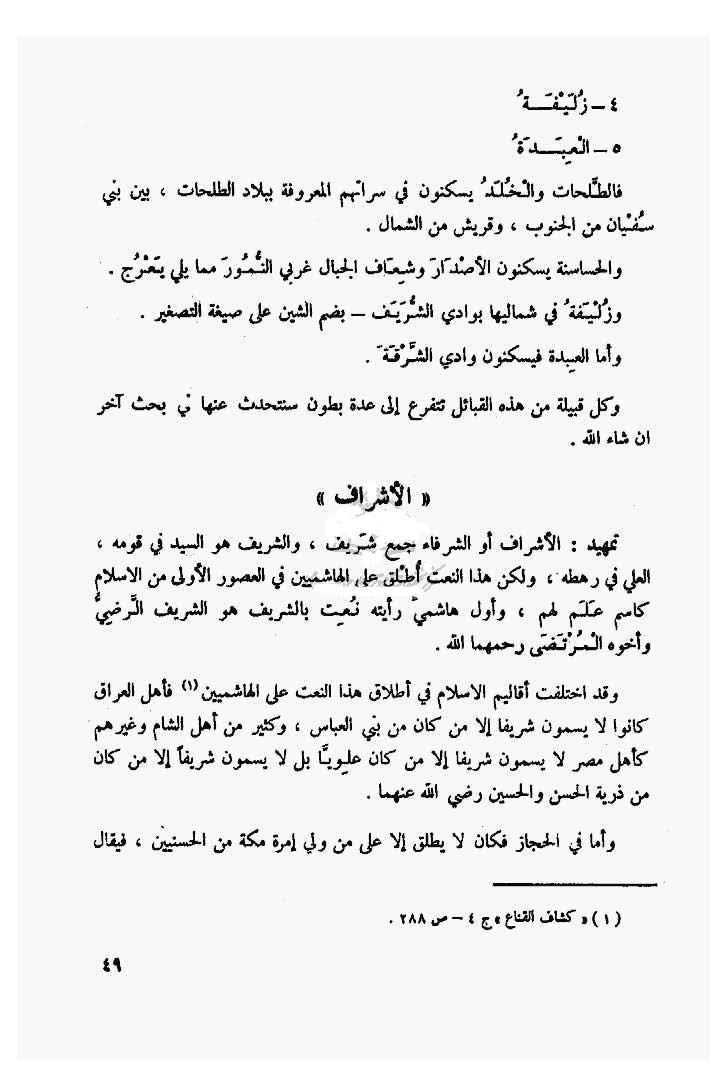 ٤ – زُلَيْفَةُ
٥ – الْعِبَدَةُ
فالطَّلحات والْخُلَدُ يسكنون في سراتهم المعروفة ببلاد الطلحات ، بين بني
سُفْيان من الجنوب ، وقريش من الشمال .
والحساسنة يسكنون الأصْدَارَ وشِعَاف الجبال غربي النُّمُورَ مما يلي يَعْرُج .
وزُلَيْفَةُ في شماليها بوادي الشُّرَيَف – بضم الشين على صيغة التصغير .
وأما العبِدة فيسكنون وادي الشَّرْقَةَ .
وكل قبيلة من هذه القبائل تتفرع إلى عدة بطون سنتحدث عنها في بحث آخر
ان شاء الله .
« الأشراف »
تمهيد : الأشراف أو الشرفاء جمع شَريف ، والشريف هو السيد في قومه ،
العلي في رهطه ، ولكن هذا النعت أُطْلق على الهاشميين في العصور الأولى من الاسلام
كاسم عَلَم لهم ، وأول هاشمي رأيته نُعِت بالشريف هو الشريف الرَّضِيُّ
وأخوه الْمُرْتَضَى رحمهما الله .
وقد اختلفت أقاليم الاسلام في أطلاق هذا النعت على الهاشميين (١) فأهل العراق
كانوا لا يسمون شريفا إلا من كان من بني العباس ، وكثير من أهل الشام وغيرهم
كأهل مصر لا يسمون شريفا إلا من كان علوِيًّا بل لا يسمون شريفاً إلا من كان
من ذرية الحسن والحسين رضي الله عنهما .
وأما في الحجاز فكان لا يطلق إلا على من ولي إمرة مكة من الحسنيين ، فيقال
(١) « كشاف القناع » ج ٤ – ص ٢٨٨ .
٤٩